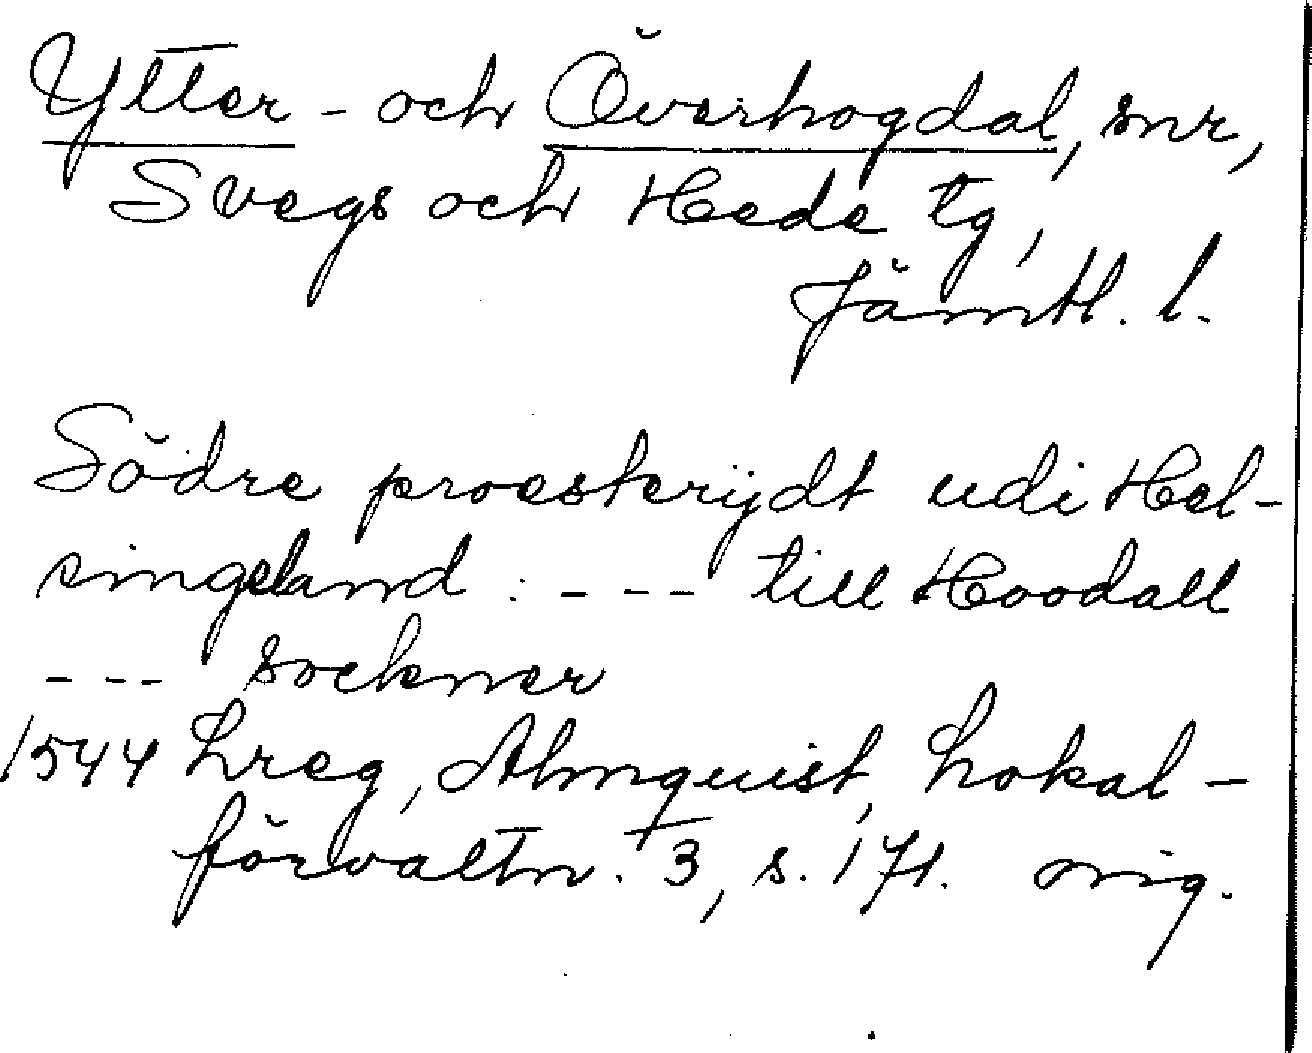 Ytter- och Överhogdal, snr,
Svegs och Hede tg,
Jämtl. l.
Södre proesterijdt udi Hel-
singeland : --- till Hoodall
--- sockner
1544 Lreg, Almquist, Lokal-
förvaltn. 3, s. 171. orig.